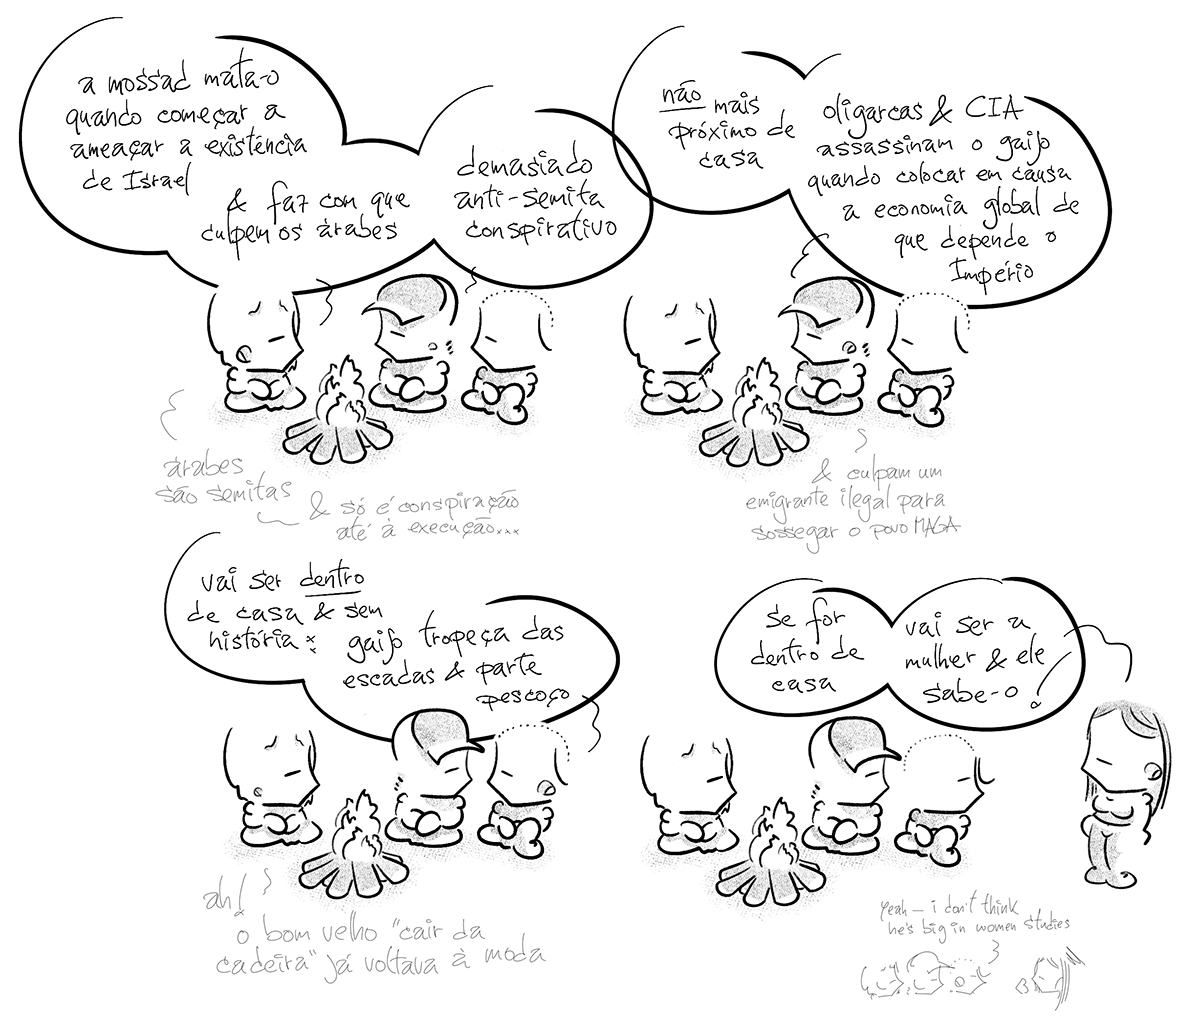 a mossad mata-o
quando começar a
ameaçar a existência
de Israel
& faz com que
culpem os árabes
demasiado
anti-semita
conspirativo
árabes
são semitas
& só é conspiração
até à execução...
não mais
próximo de
casa
oligarcas & CIA
assassinam o gaijo
quando colocar em causa
a economia global de
que depende o
Império
& culpam um
emigrante ilegal para
sossegar o povo MAGA
vai ser dentro
de casa & sem
história:
gaijo tropeça das
escadas & parte
pescoço
ah!
o bom velho "cair da
cadeira" já voltava à moda
se for
dentro de
casa
vai ser a
mulher & ele
sabe-o!
yeah — i don't think
he's big in women studies